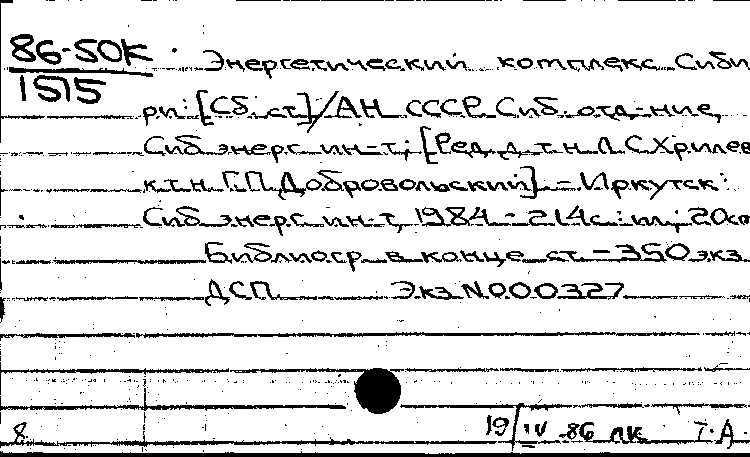 86-50к
1515
Энергетический комплекс Сиби
ри: [Сб. ст.] / АН СССР. Сиб. отд-ние,
Сиб. энерг. ин-т; [Ред. д. т. н. Л. С. Хрилев
к. т. н. Г. П. Добровольский]. - Иркутск:
Сиб. энерг. ин-т, 1984. - 214 с.: ил.; 20 см
Библиогр. в конце ст. - 350 экз.
ДСП. Экз. N 000327
8 19/IV-86 лк Т.А.